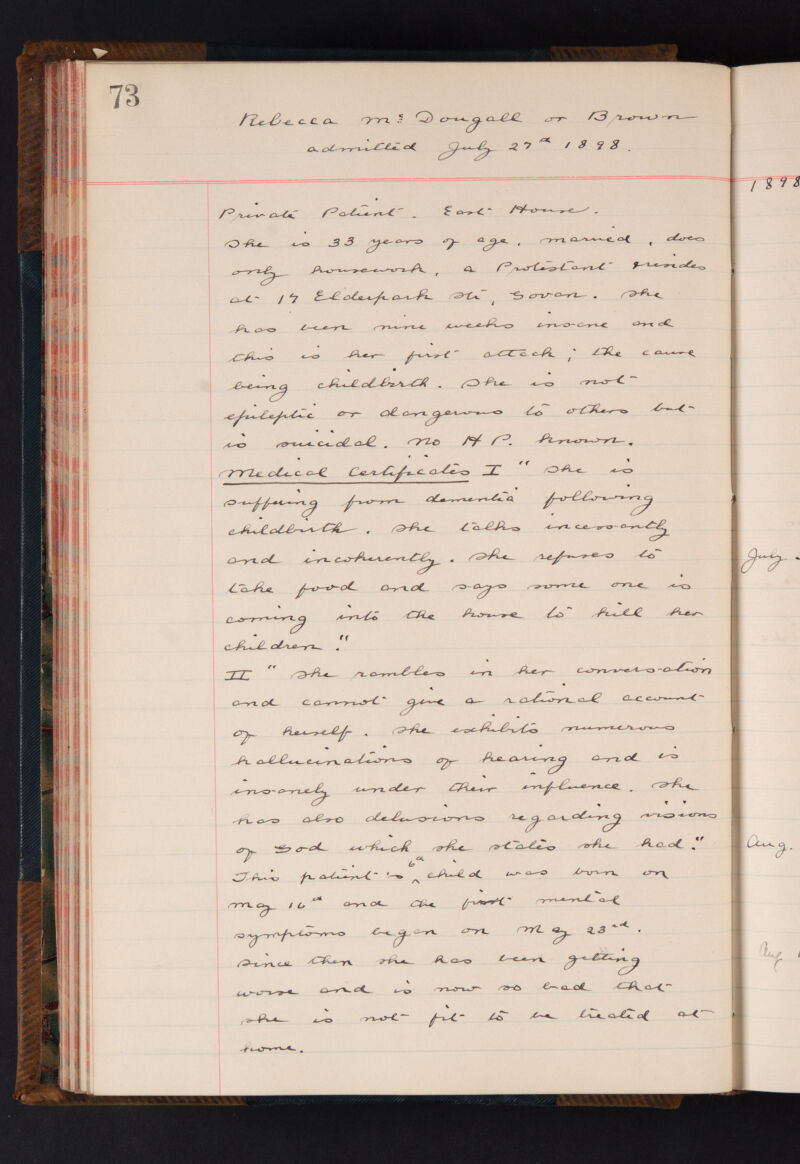 73
Rebecca Mc Dougall or Brown
admitted July 27th 1898.
1898
Private Patient. East House.
She is 33 years of age, married, does
only housework, a Protestant & resides
at 17 Elderpark St:, Govan. She
has been nine weeks insane and
this is her first attack; the cause
being childbirth. She is not
epileptic or dangerous to others but
is suicidal. No H P. known.
Medical Certificates I " She is
suffering from dementia following
childbirth. She talks incessantly
and incoherently. She refuses to
take food and says some one is
coming into the house to kill her
children."
II " She rambles in her conversation
and cannot give a rational account
of herself. She exhibits numerous
hallucinations of hearing and is
insanely under their influence. She
has also delusions regarding visions
of God which she states she had."
This patient's 6th child was born on
May 16th and the first mental
symptoms began on May 23rd.
Since then she has been getting
worse and is now so bad that
she is not fit to be treated at
home.
July
Aug.
Aug